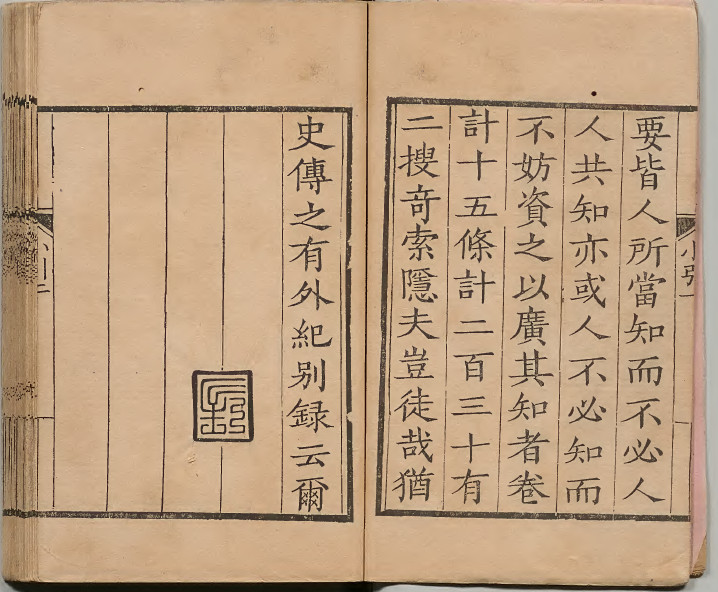 要皆人所當知而不必人
人共知亦或人不必知而
不妨資之以廣其知者卷
計十五條計二百三十有
二搜奇索隱夫豈徒哉猶
史傳之有外紀别録云爾
小引一